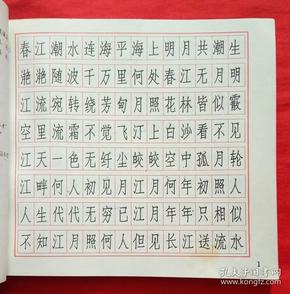 春江潮水连海平海上明月共潮生
滟滟随波千万里何处春江无月明
江流宛转绕芳甸月照花林皆似霰
空里流霜不觉飞汀上白沙看不见
江天一色无纤尘皎皎空中孤月轮
江畔何人初见月江月何年初照人
人生代代无穷已江月年年只相似
不知江月照何人但见长江送流水
1
孔夫子旧书网